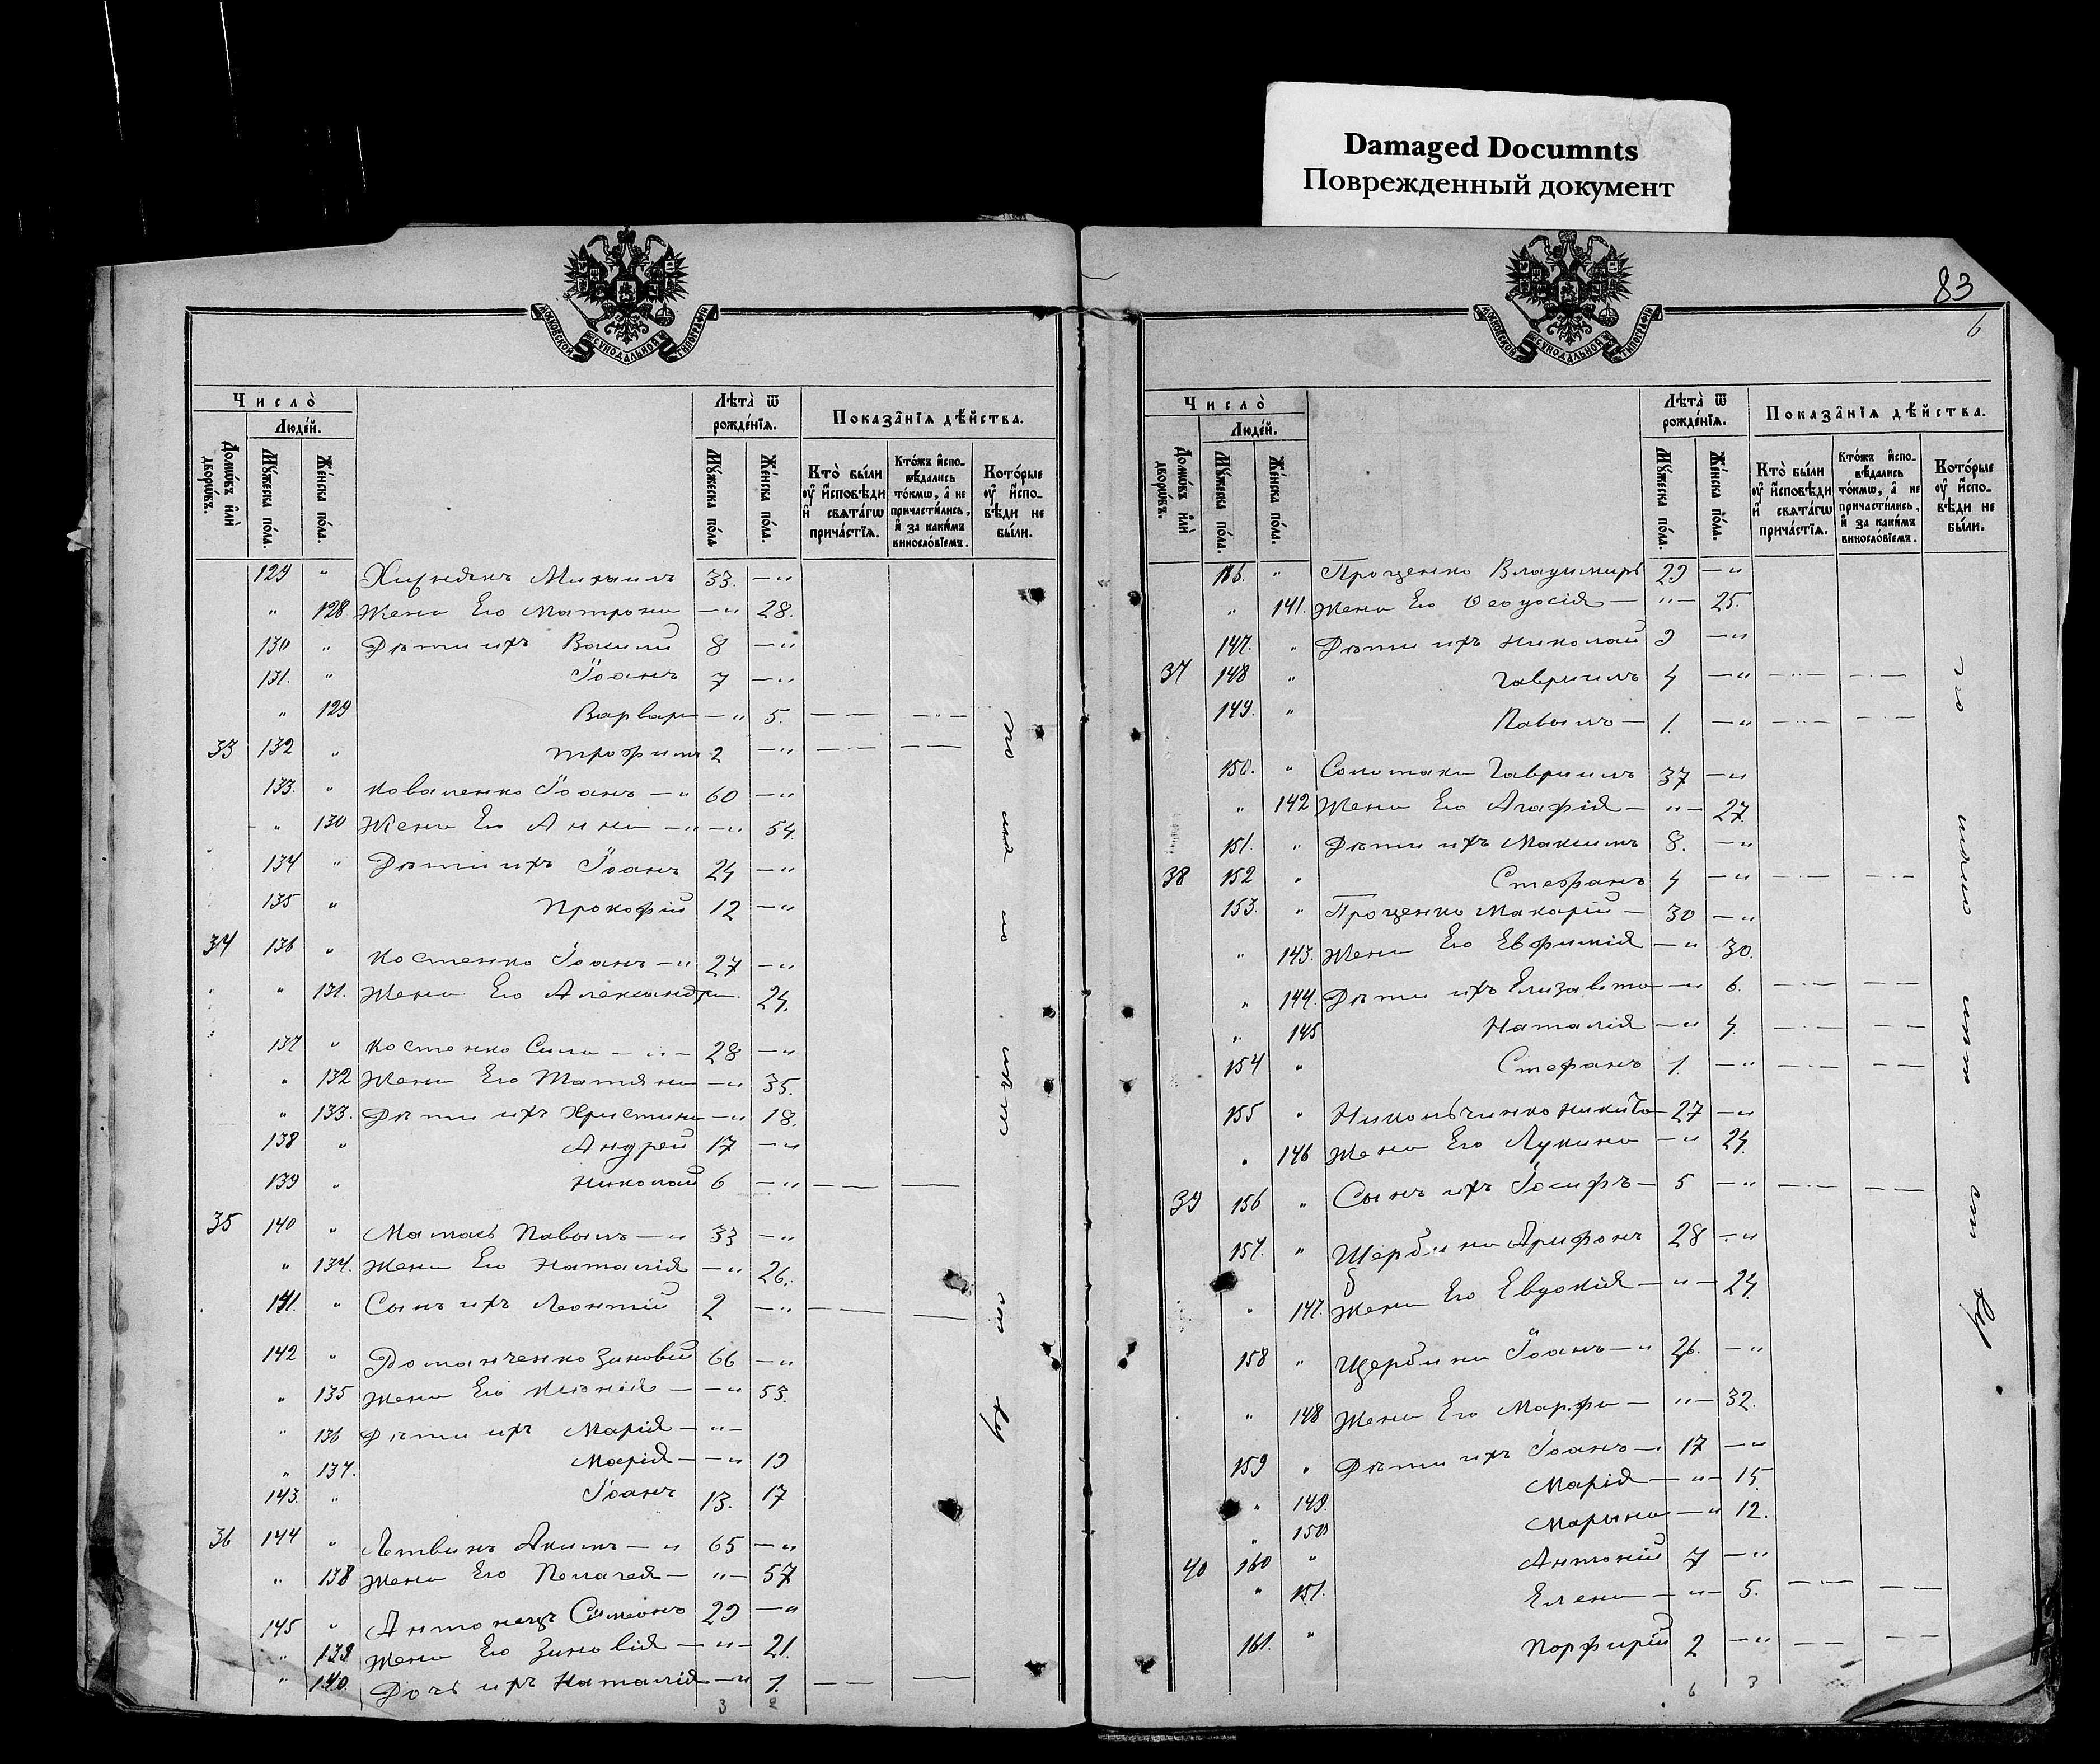 Damaged Documnts
Поврежденный документ
83
6
МОСКОВСКОЙ СѴНОДАЛЬНОЙ ТИПОГРАФІИ
Число̀
Людей.
Домѡвъ или дворѡвъ.
Мужеска пола.
Женска пола.
Лѣта ѿ рожденїѧ.
Мужеска пола.
Женска пола.
Показанїѧ дѣйства.
Кто были оу исповѣди и свѧтагѡ причастїѧ.
Ктожъ исповѣдались токмѡ, а не причастились, и за какимъ винословїемъ.
Которые оу исповѣди не были.
129 " Михаилъ 33. — "
" 128 Жена Его Матрона — " 28.
130 " Дѣти ихъ Василий 8 — "
131. " Іоанъ 7 — "
" 129 Варвара — " 5. — — — —
33 132 " Трофимъ 2 — " — — — —
133. " Коваленко Іоанъ — " 60 — "
" 130 Жена Его Анна — " — " 54.
134 " Дѣти ихъ Іоанъ 24 — "
135 " Прокофій 12 — "
34 136 " Костенко Іоанъ — " 27 — "
" 131. Жена Его Александра 24.
137 " Костенко Сила — " — 28 — "
" 132 Жена Его Татьяна — " 35.
" 133. Дѣти ихъ Христина — " 18.
138 " Андрей 17 — "
139 " Николай 6 — " — — —
35 140 " Павелъ — " 33 — "
" 134. Жена Его Наталія — " 26.
141. " Сынъ ихъ Леонтій 2 — " — — —
142 " Романченко Зиновій 66 — "
" 135 Жена Его — — " 53.
" 136 Дѣти ихъ Марія — " —
" 137. Марія — — " 19
143. " Іоанъ 13. 17
36 144 " Летвинъ Акимъ — " 65 — "
" 138 Жена Его Пелагея — " — 57
145 " Антонецъ Симеонъ 29 — "
" 139 Жена Его Зиновія — " — 21.
" 140. Дочь ихъ Наталія — " 1. — — —
3 2
Число̀
Людей.
Домѡвъ или дворѡвъ.
Мужеска пола.
Женска пола.
Лѣта ѿ рожденїѧ.
Мужеска пола.
Женска пола.
Показанїѧ дѣйства.
Кто были оу исповѣди и свѧтагѡ причастїѧ.
Ктожъ исповѣдались токмѡ, а не причастились, и за какимъ винословїемъ.
Которые оу исповѣди не были.
146. " Проценко Владимиръ 29 — "
" 141. Жена Его Ѳеодосія — " — 25.
147. " Дѣти ихъ Николай 9 — "
37 148 " Гавриилъ 4 — " — — — —
149. " Павелъ — 1. — " — — — —
150. " Гавриилъ 37 — "
" 142 Жена Его Агафія — " — 27.
151. " Дѣти ихъ Максимъ 8. — "
38 152 " Стефанъ 4 — " — — — —
153. " Проценко Макарій — 30 — "
" 143. Жена Его Евфимія — " 30.
" 144. Дѣти ихъ Елизавета — " 6. — — — —
" 145 Наталія — " 4. — — — —
154 " Стефанъ 1. — " — — — —
155 " Никита 27 — "
" 146 Жена Его Лукина — " 24.
39 156 " Сынъ ихъ Іосифъ — 5 — " — — — —
157. " Щербина 28 — "
" 147. Жена Его Евдокія — " — 24.
158 " Щербина Іоанъ — " 26. — "
" 148 Жена Его Марфа — " — 32.
159 " Дѣти ихъ Іоанъ — 17 — "
" 149. Марія — " — 15.
" 150 Марына — " 12.
40 160 " Антоній 7 — "
" 151. Елена — " — 5. — — — —
161. " Порфирій 2 — " — — — —
6 3